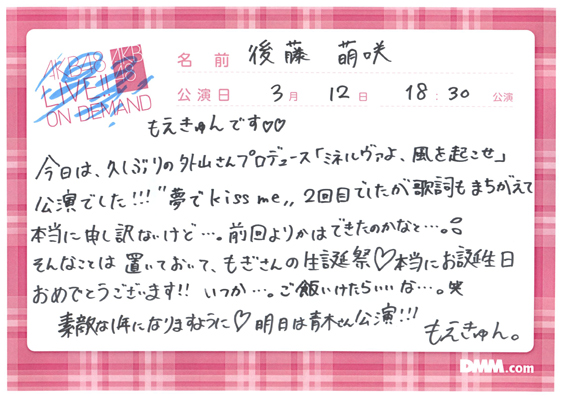 AKB48
LIVE!!
ON DEMAND
AKB
48
名前 後藤 萌咲
公演日 3月 12日 18:30 公演
もえきゅんです♡♡
今日は、久しぶりの外山さんプロデュース「ミネルヴァよ、風を起こせ」
公演でした!!!"夢でkiss me,, 2回目でしたが歌詞もまちがえて
本当に申し訳ないけど…。前回よりかはできたのかなと…。
そんなことは置いておいて、もぎさんの生誕祭♡本当にお誕生日
おめでとうございます!! いつか…。ご飯いけたらいいな…。笑
素敵な1年になりますように♡明日は青木さん公演!!!
もえきゅん。
DMM.com